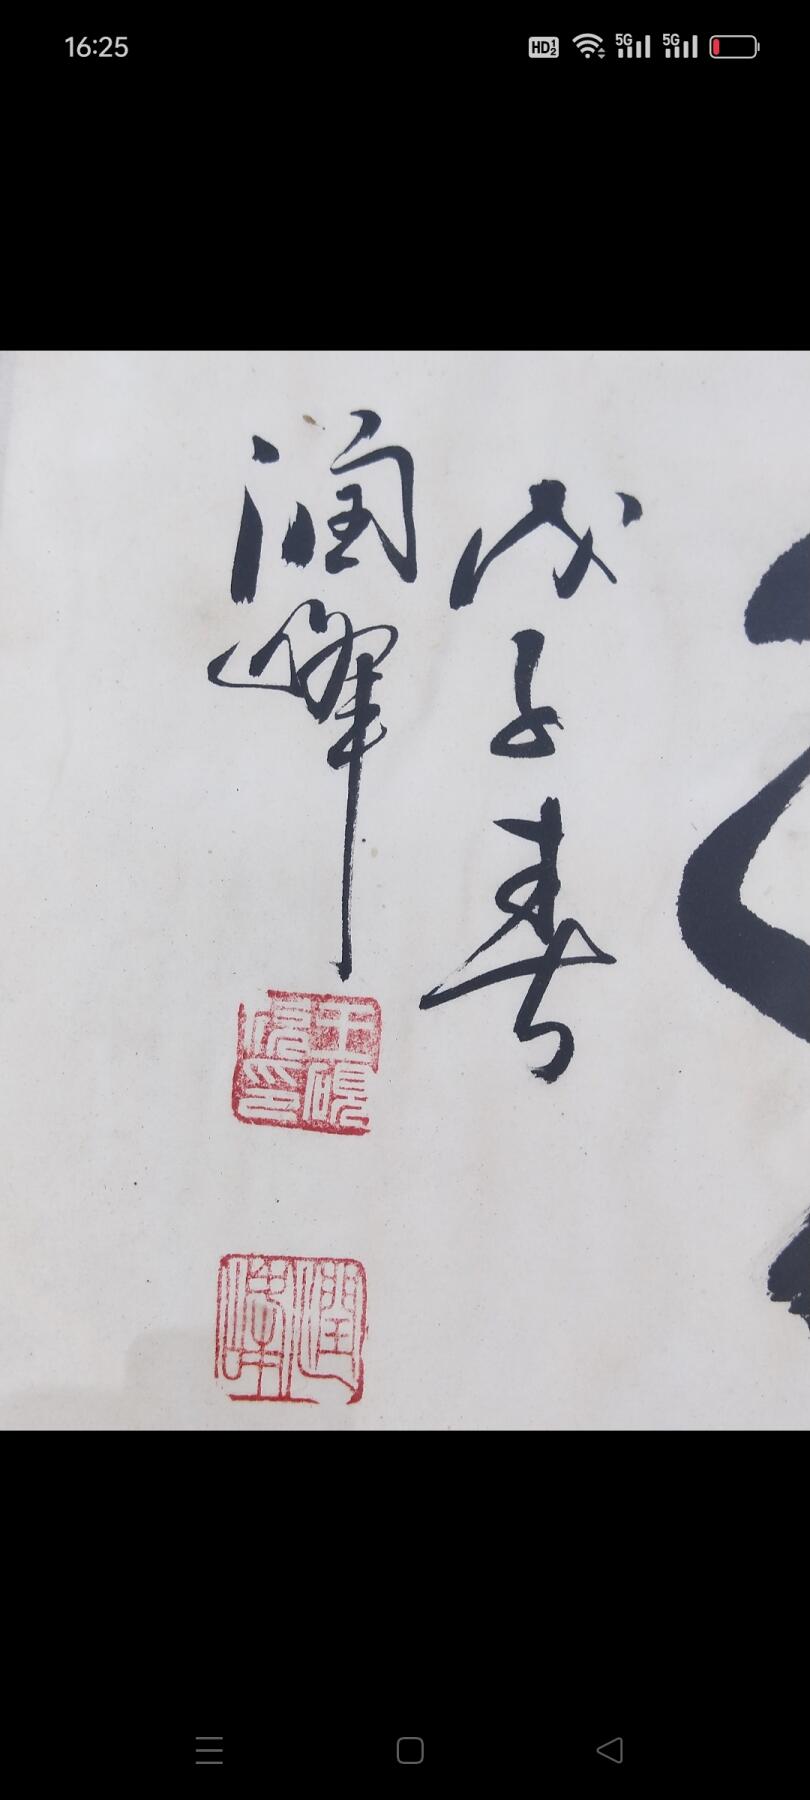 16:25
HD 5G 5G
戊子春
润峰
润